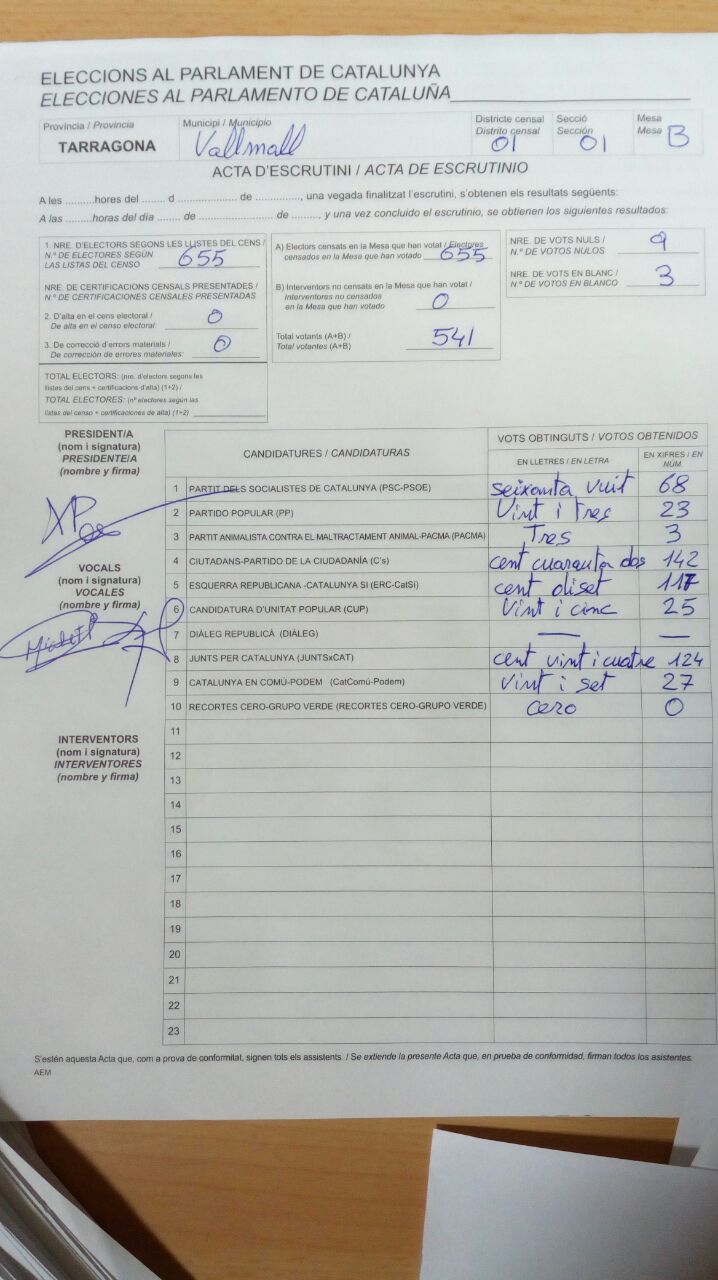 ELECCIONS AL PARLAMENT DE CATALUNYA
ELECCIONES AL PARLAMENTO DE CATALUÑA
Província / Provincia
TARRAGONA
Municipi / Municipio
Vallmoll
Districte censal
Distrito censal
01
Secció
Sección
01
Mesa
Mesa
B
ACTA D'ESCRUTINI / ACTA DE ESCRUTINIO
A les ..........hores del ........ d ...................... de ..............., una vegada finalitzat l'escrutini, s'obtenen els resultats següents:
A las .........horas del día ....... de ......................... de ........, y una vez concluido el escrutinio, se obtienen los siguientes resultados:
1. NRE. D'ELECTORS SEGONS LES LLISTES DEL CENS /
N.º DE ELECTORES SEGÚN
LAS LISTAS DEL CENSO 655
NRE. DE CERTIFICACIONS CENSALS PRESENTADES /
N.º DE CERTIFICACIONES CENSALES PRESENTADAS
2. D'alta en el cens electoral /
De alta en el censo electoral: 0
3. De correcció d'errors materials /
De corrección de errores materiales: 0
TOTAL ELECTORS: (nre. d'electors segons les
llistes del cens + certificacions d'alta) (1+2) /
TOTAL ELECTORES: (nº electores según las
listas del censo + certificaciones de alta) (1+2)
A) Electors censats en la Mesa que han votat / Electores
censados en la Mesa que han votado 655
B) Interventors no censats en la Mesa que han votat /
Interventores no censados
en la Mesa que han votado 0
Total votants (A+B) /
Total votantes (A+B) 541
NRE. DE VOTS NULS /
N.º DE VOTOS NULOS 9
NRE. DE VOTS EN BLANC /
N.º DE VOTOS EN BLANCO 3
PRESIDENT/A
(nom i signatura)
PRESIDENTE/A
(nombre y firma)
VOCALS
(nom i signatura)
VOCALES
(nombre y firma)
INTERVENTORS
(nom i signatura)
INTERVENTORES
(nombre y firma)
CANDIDATURES / CANDIDATURAS
VOTS OBTINGUTS / VOTOS OBTENIDOS
EN LLETRES / EN LETRA
EN XIFRES / EN NÚM
1 PARTIT DELS SOCIALISTES DE CATALUNYA (PSC-PSOE) seixanta vuit 68
2 PARTIDO POPULAR (PP) Vint i tres 23
3 PARTIT ANIMALISTA CONTRA EL MALTRACTAMENT ANIMAL-PACMA (PACMA) Tres 3
4 CIUTADANS-PARTIDO DE LA CIUDADANÍA (C's) cent cuaranta dos 142
5 ESQUERRA REPUBLICANA -CATALUNYA SI (ERC-CatSi) cent diset 117
6 CANDIDATURA D'UNITAT POPULAR (CUP) Vint i cinc 25
7 DIÀLEG REPUBLICÀ (DIÀLEG) — —
8 JUNTS PER CATALUNYA (JUNTSxCAT) cent vint i cuatre 124
9 CATALUNYA EN COMÚ-PODEM (CatComú-Podem) Vint i set 27
10 RECORTES CERO-GRUPO VERDE (RECORTES CERO-GRUPO VERDE) cero 0
11
12
13
14
15
16
17
18
19
20
21
22
23
S'estén aquesta Acta que, com a prova de conformitat, signen tots els assistents. / Se extiende la presente Acta que, en prueba de conformidad, firman todos los asistentes.
AEM